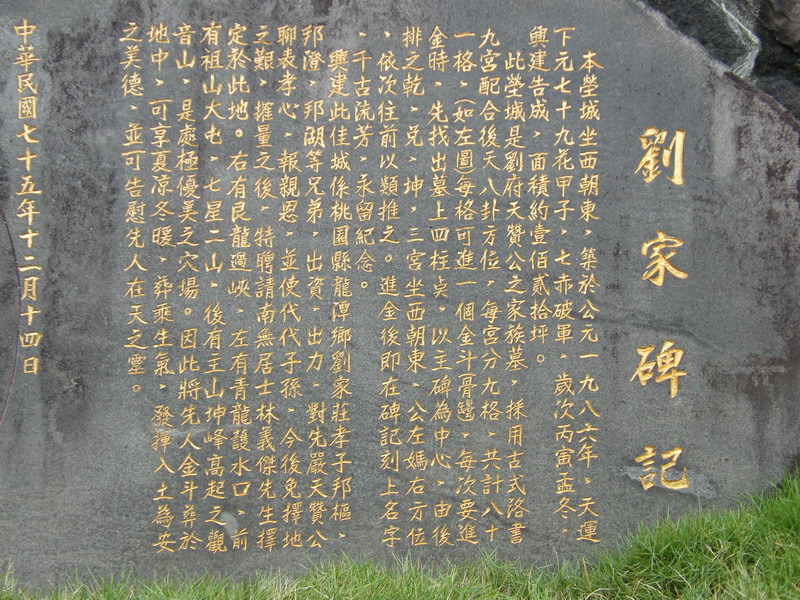 劉家碑記
本塋城坐西朝東，築於公元一九八六年，天運
下元七十九花甲子，七赤破軍，歲次丙寅孟冬，
興建告成，面積約壹佰貳拾坪。
此塋城是劉府天贊公之家族墓，採用古式洛書
九宮配合後天八卦方位，每宮分九格，共計八十
一格，(如左圖)每格可進一個金斗骨罈，每次要進
金時，先找出墓上四柱點，以主碑為中心，由後
排之乾，兌，坤，三宮坐西朝東，公左媽右方位
，依次往前以類推之。進金後即在碑記刻上名字
，千古流芳，永留紀念。
興建此佳城係桃園縣龍潭鄉劉家莊孝子邦樞，
邦澄，邦湖等兄弟，出資，出力，對先嚴天贊公
聊表孝心，報親恩，並使代代子孫，今後免擇地
之艱，搉量之後，特聘請南無居士林義傑先生擇
定於此地。右有艮龍過峽，左有青龍護水口，前
有祖山大屯，七星二山，後有主山坤峰高起之觀
音山，是處極優美之穴場。因此將先人金斗葬於
地中，可享夏凉冬暖，葬乘生氣，發揮入土為安
之美德，並可告慰先人在天之靈。
中華民國七十五年十二月十四日